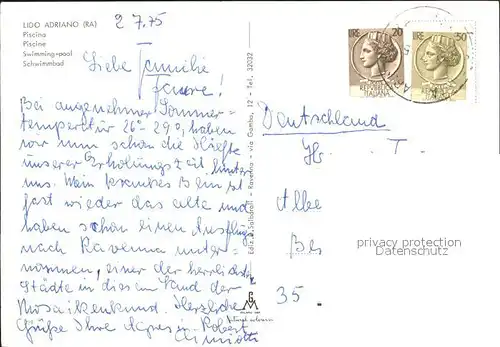 LIDO ADRIANO (RA)
Piscina
Piscine
Swimming-pool
Schwimmbad
2 7.75
Liebe Familie
Bei angenehmer Sommer=
temperatur 26°- 29°, haben
wir nun schon die Hälfte
unserer Erholungszeit hinter
uns. Mein krankes Bein ist
fast wieder das alte und
haben schon einen Ausflug
nach Ravenna unter-
nommen, einer der herrlichsten
Städte in dies am Land der
Mosaikenkunst. Herzliche
Grüße Ihre Agnes u. Robert
Ediz. A. Salbaroli - Ravenna - via Gamba, 12 - Tel. 32032
LIRE 20
REPUBBLICA
ITALIANA
LIRE 50
Deutschland
T.
35.
privacy protection
Datenschutz